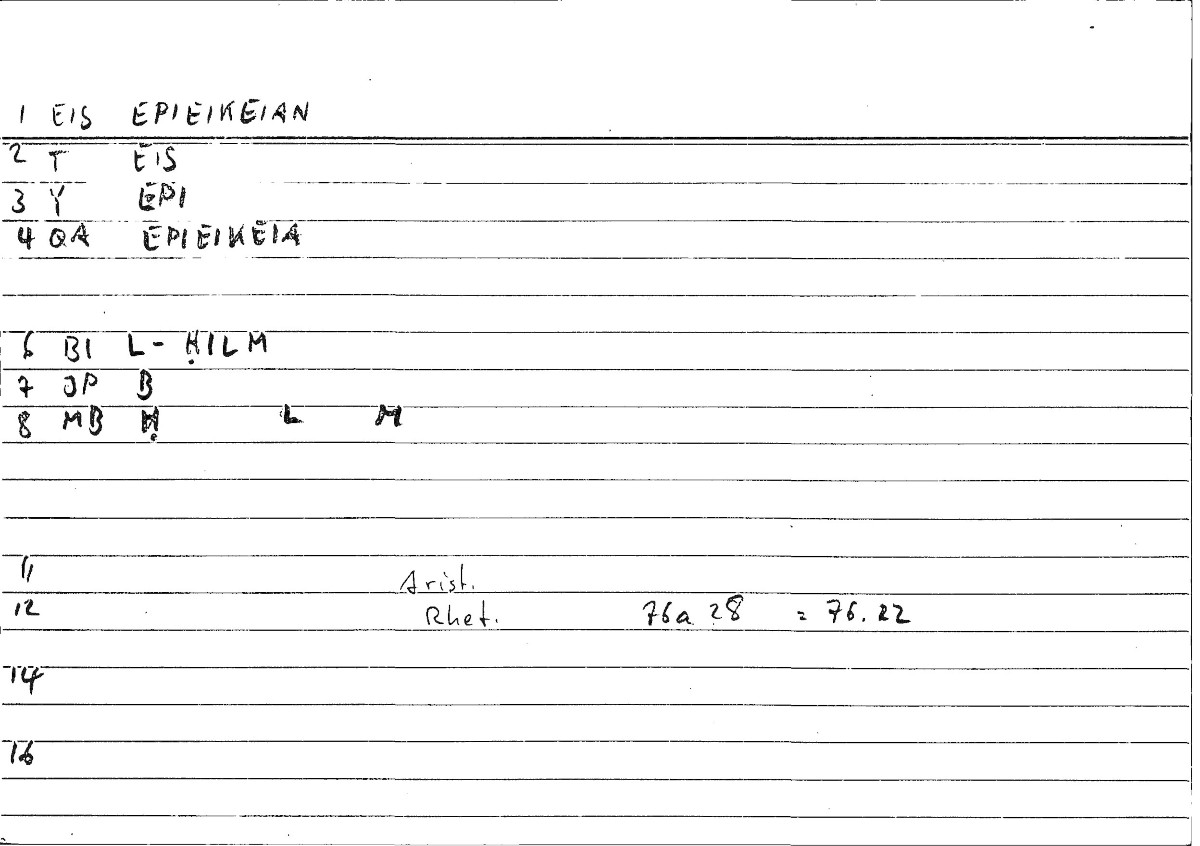 1 EIS EPIEIKEIAN
2 T EIS
3 Y EPI
4 QA EPIEIKEIA
6 BI L-ḤILM
7 JP B
8 MB Ḥ L M
11 Arist.
12 Rhet. 76a 28 = 76.22
14
16